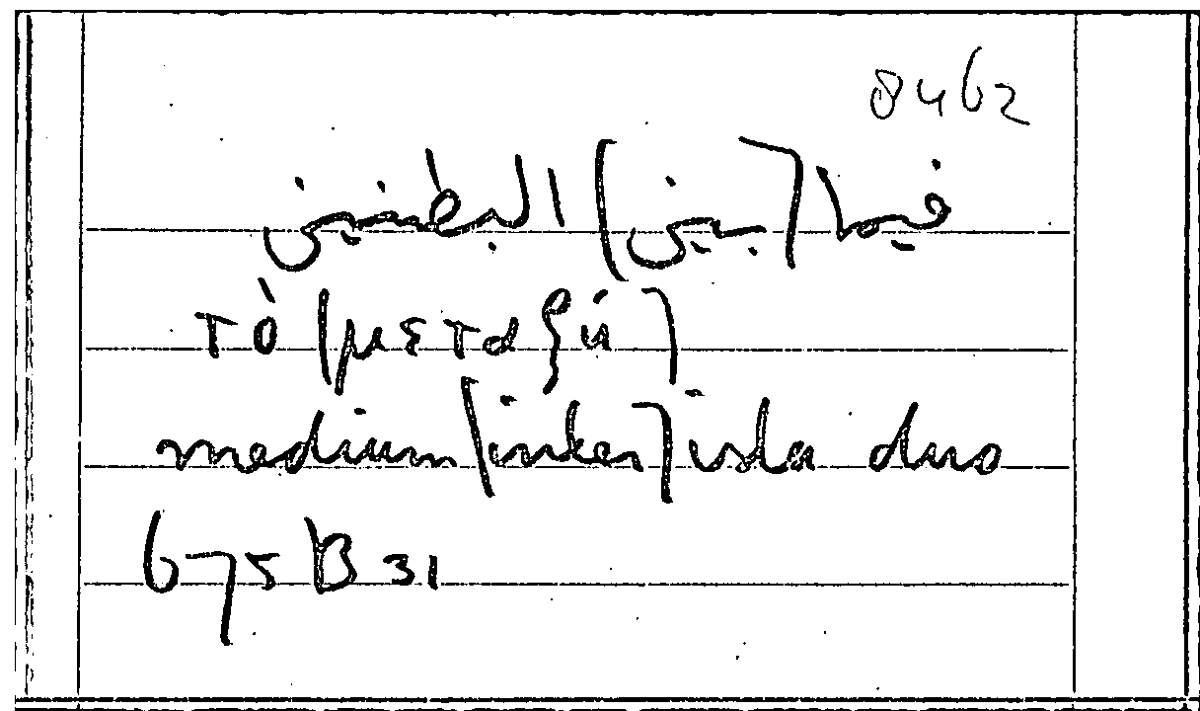 8462
فيما [بين] البطنين
τὸ [μεταξύ]
medium [inter] ista duo
675 B 31